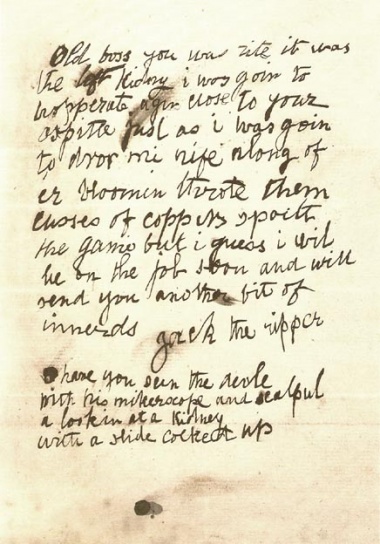 Old boss you was rite it was
the left kidny i was goin to
hopperate agin close to your
ospitle just as i was goin
to dror mi nife along of
er bloomin throte them
cusses of coppers spoilt
the game but i guess i wil
be on the job soon and will
send you another bit of
innerds
Jack the ripper
O have you seen the devle
with his mikerscope and scalpul
a lookin at a Kidney
with a slide cocked up